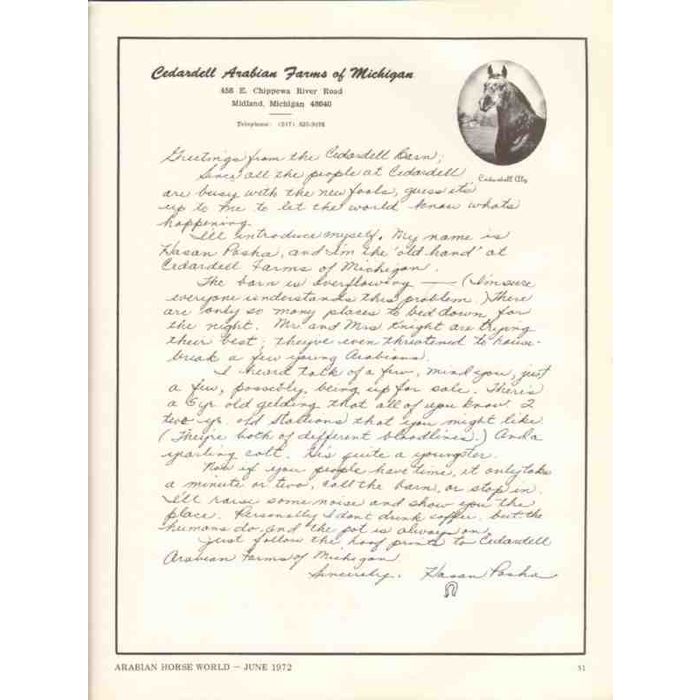 Cedardell Arabian Farms of Michigan
458 E. Chippewa River Road
Midland, Michigan 48640
Telephone: (517)
Cedardell Aly
Greetings from the Cedardell Barn;
Since all the people at Cedardell
are busy with the new foals, guess its
up to me to let the world know whats
happening.
I'll introduce myself. My name is
Hasan Pasha, and I'm the 'old hand' at
Cedardell Farms of Michigan.
The barn is overflowing — (I'm sure
everyone understands this problem.) There
are only so many places to bed down for
the night. Mr and Mrs Knight are trying
their best; theyve even threatened to house-
break a few young Arabians.
I heard talk of a few, mind you, just
a few, possibly being up for sale. There's
a 6 yr old gelding that all of you know. 2
two yr. old stallions that you might like.
(They're both of different bloodlines.) And a
yearling colt. He's quite a youngster.
Now if you people have time, it only takes
a minute or two, call the barn, or stop in.
I'll raise some noise and show you the
place. Personally I don't drink coffee, but the
humans do, and the pot is always on.
Just follow the hoof prints to Cedardell
Arabian Farms of Michigan
Sincerely, Hasan Pasha
ARABIAN HORSE WORLD — JUNE 1972
51